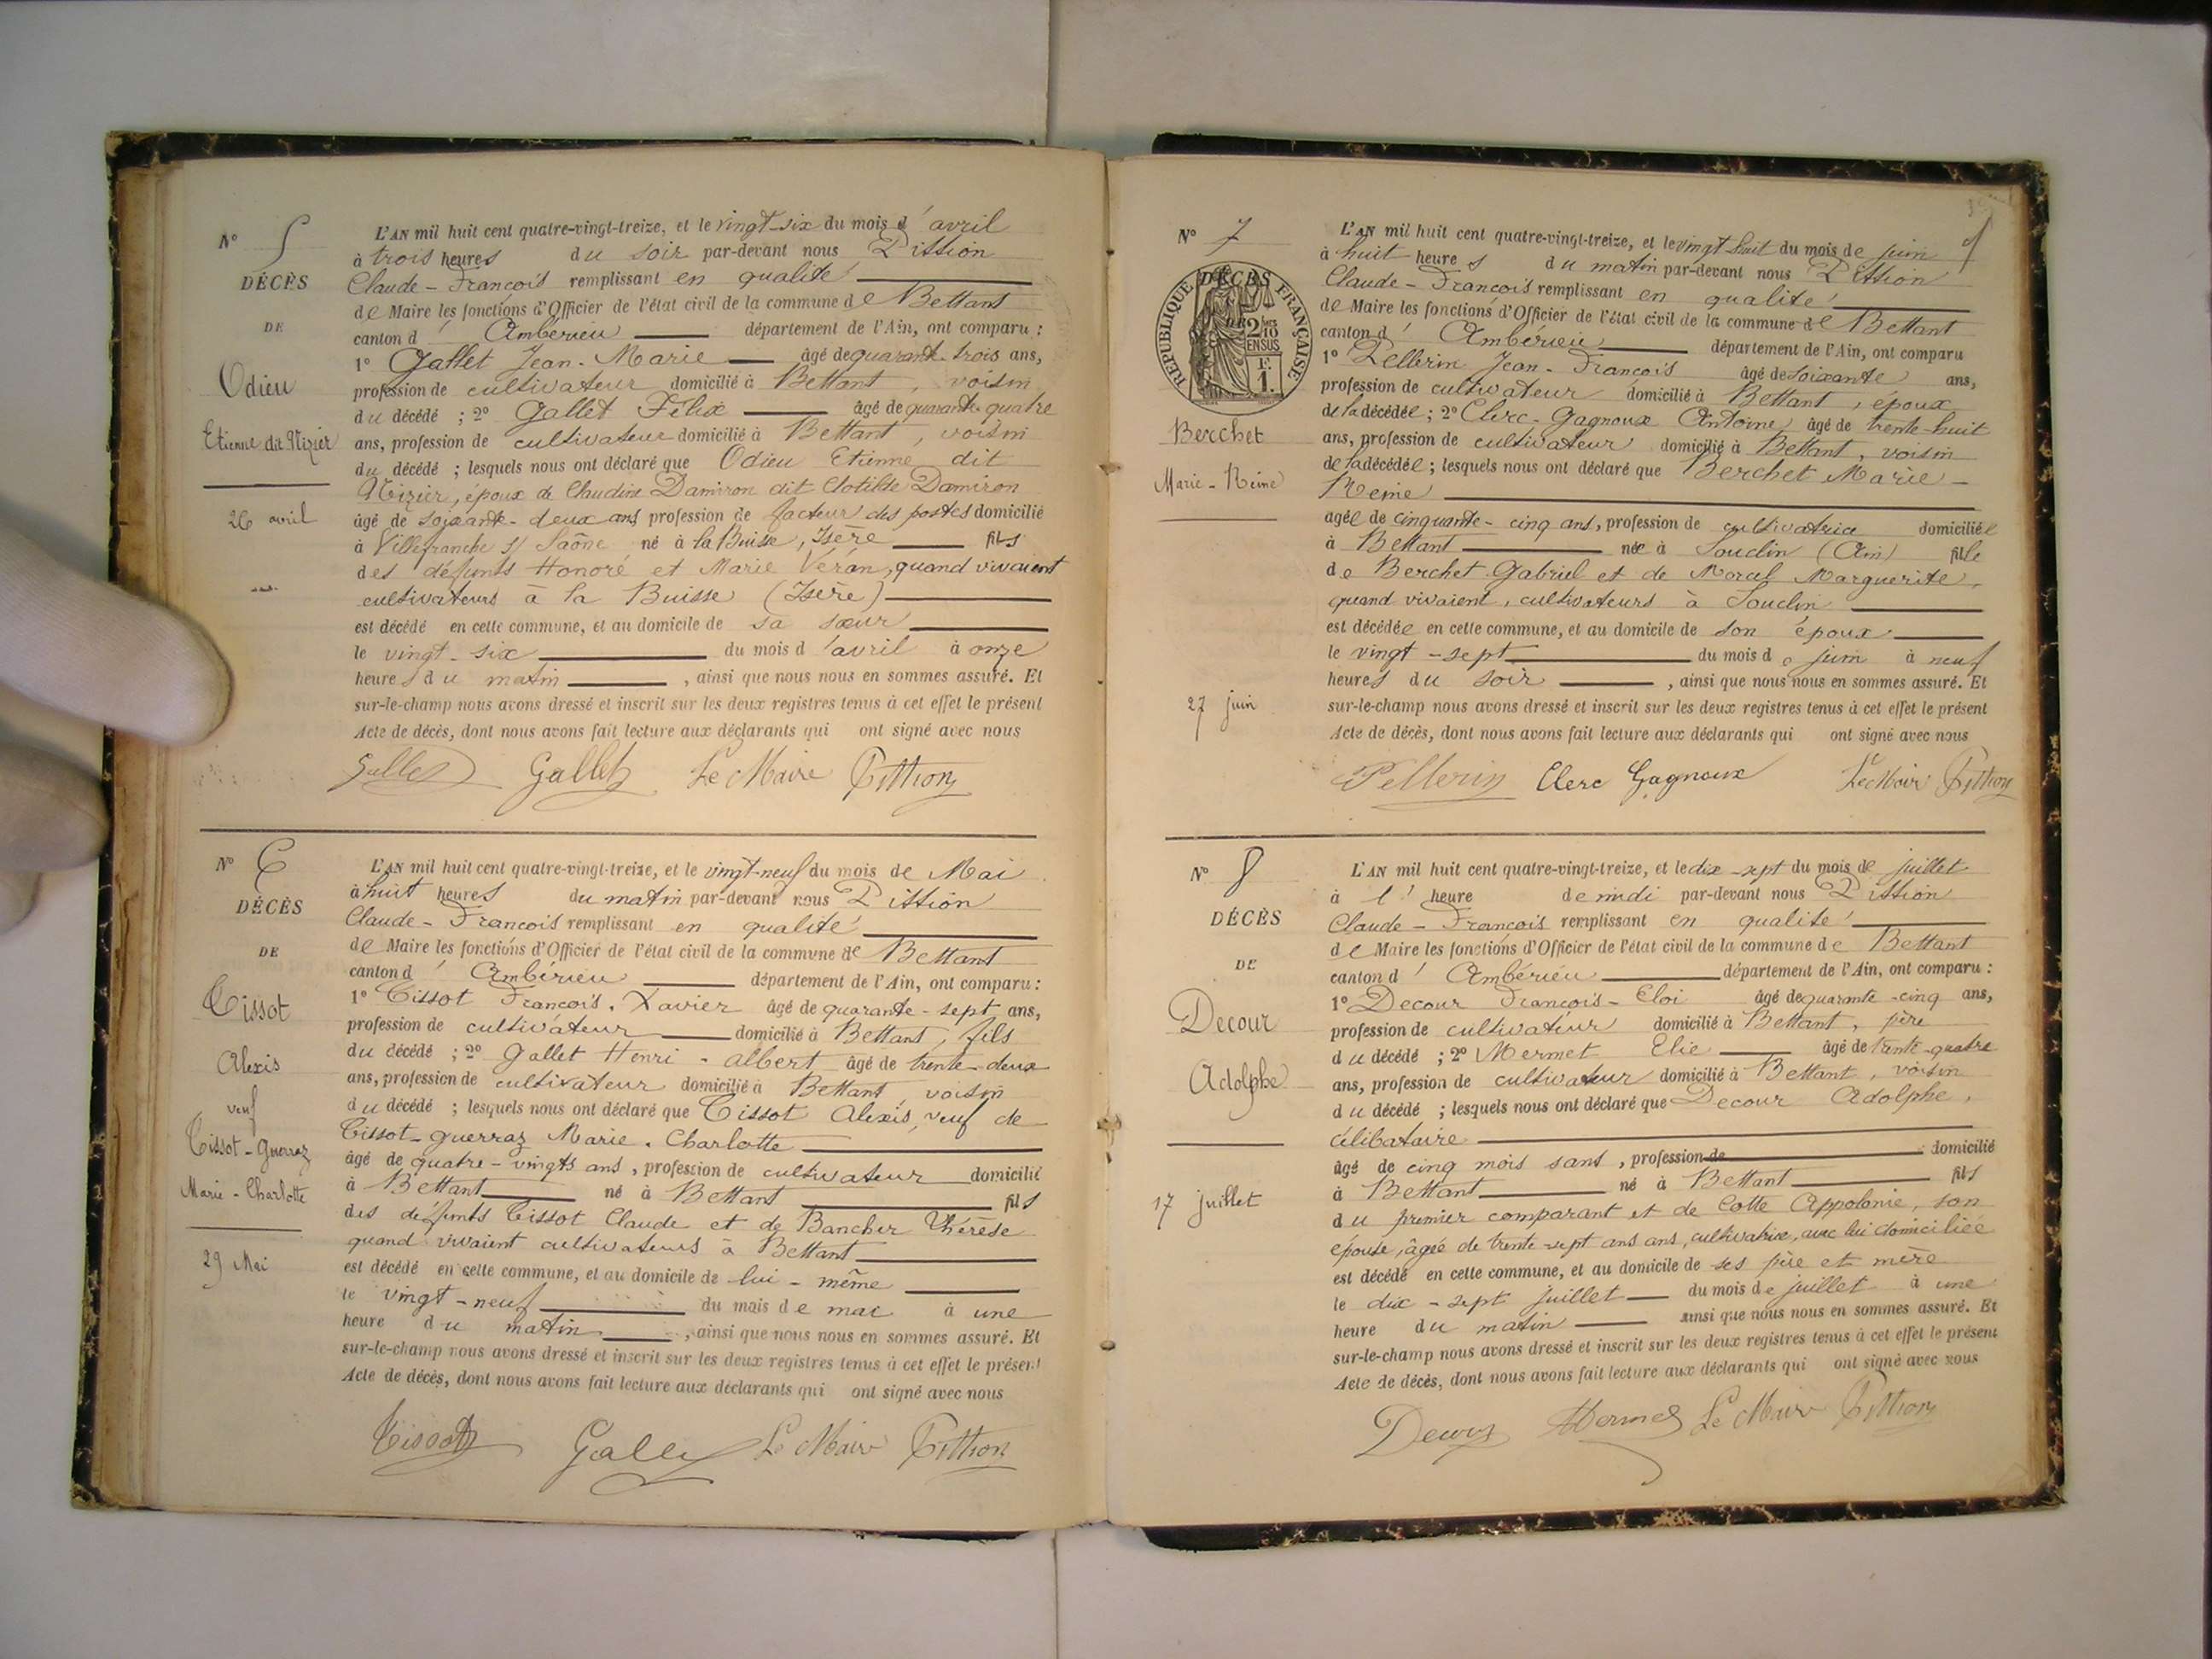 N° 5
DÉCÈS
DE
Odieu
Etienne dit Nizier
26 avril
L'AN mil huit cent quatre-vingt-treize, et le vingt-six du mois d'avril
à trois heures du soir par-devant nous Pittion
Claude-François remplissant en qualité
de Maire les fonctions d'Officier de l'état civil de la commune de Bettant
canton d'Ambérieu département de l'Ain, ont comparu :
1° Gallet Jean-Marie âgé de quarante-trois ans,
profession de cultivateur domicilié à Bettant, voisin
du décédé ; 2° Gallet Félix âgé de quarante-quatre
ans, profession de cultivateur domicilié à Bettant, voisin
du décédé ; lesquels nous ont déclaré que Odieu Etienne dit
Nizier, époux de Claudine Damiron dit Clotilde Damiron
âgé de soixante-deux ans profession de facteur des postes domicilié
à Villefranche s/ Saône né à la Buisse, Isère fils
des défunts Honoré et Marie Véran, quand vivaient
cultivateurs à la Buisse (Isère)
est décédé en cette commune, et au domicile de sa sœur
le vingt-six du mois d'avril à onze
heures du matin, ainsi que nous nous en sommes assuré. Et
sur-le-champ nous avons dressé et inscrit sur les deux registres tenus à cet effet le présent
Acte de décès, dont nous avons fait lecture aux déclarants qui ont signé avec nous
Gallet Gallet Le Maire Pittion
N° 6
DÉCÈS
DE
Tissot
Alexis
veuf
Tissot-Guerraz
Marie-Charlotte
29 Mai
L'AN mil huit cent quatre-vingt-treize, et le vingt-neuf du mois de Mai
à huit heures du matin par-devant nous Pittion
Claude-François remplissant en qualité
de Maire les fonctions d'Officier de l'état civil de la commune de Bettant
canton d'Ambérieu département de l'Ain, ont comparu :
1° Tissot François-Xavier âgé de quarante-sept ans,
profession de cultivateur domicilié à Bettant, fils
du décédé ; 2° Gallet Henri-Albert âgé de trente-deux
ans, profession de cultivateur domicilié à Bettant, voisin
du décédé ; lesquels nous ont déclaré que Tissot Alexis, veuf de
Tissot-Guerraz Marie-Charlotte
âgé de quatre-vingts ans, profession de cultivateur domicilié
à Bettant né à Bettant fils
des défunts Tissot Claude et de Bancher Thérèse
quand vivaient cultivateurs à Bettant
est décédé en cette commune, et au domicile de lui-même
le vingt-neuf du mois de mai à une
heure du matin, ainsi que nous nous en sommes assuré. Et
sur-le-champ nous avons dressé et inscrit sur les deux registres tenus à cet effet le présent
Acte de décès, dont nous avons fait lecture aux déclarants qui ont signé avec nous
Tissot Gallet Le Maire Pittion
N° 7
DÉCÈS
RÉPUBLIQUE FRANÇAISE
2/10 EN SUS
F. 1.
Berchet
Marie-Reine
27 juin
L'AN mil huit cent quatre-vingt-treize, et le vingt huit du mois de juin
à huit heures du matin par-devant nous Pittion
Claude-François remplissant en qualité
de Maire les fonctions d'Officier de l'état civil de la commune de Bettant
canton d'Ambérieu département de l'Ain, ont comparu
1° Pellerin Jean-François âgé de soixante ans,
profession de cultivateur domicilié à Bettant, époux
de la décédée ; 2° Clerc-Gagnoux Antoine âgé de trente-huit
ans, profession de cultivateur domicilié à Bettant, voisin
de la décédée ; lesquels nous ont déclaré que Berchet Marie-
Reine
agée de cinquante-cinq ans, profession de cultivatrice domiciliée
à Bettant née à Souclin (Ain) fille
de Berchet Gabriel et de Morel Marguerite,
quand vivaient, cultivateurs à Souclin
est décédée en cette commune, et au domicile de son époux
le vingt-sept du mois de juin à neuf
heures du soir, ainsi que nous nous en sommes assuré. Et
sur-le-champ nous avons dressé et inscrit sur les deux registres tenus à cet effet le présent
Acte de décès, dont nous avons fait lecture aux déclarants qui ont signé avec nous
Pellerin Clerc Gagnoux Le Maire Pittion
N° 8
DÉCÈS
DE
Decour
Adolphe
17 juillet
L'AN mil huit cent quatre-vingt-treize, et le dix-sept du mois de juillet
à l' heure de midi par-devant nous Pittion
Claude-François remplissant en qualité
de Maire les fonctions d'Officier de l'état civil de la commune de Bettant
canton d'Ambérieu département de l'Ain, ont comparu :
1° Decour François-Eloi âgé de quarante-cinq ans,
profession de cultivateur domicilié à Bettant, père
du décédé ; 2° Mermet Elie âgé de trente-quatre
ans, profession de cultivateur domicilié à Bettant, voisin
du décédé ; lesquels nous ont déclaré que Decour Adolphe,
célibataire
âgé de cinq mois sans, profession de domicilié
à Bettant né à Bettant fils
du premier comparant et de Cotte Appolonie, son
épouse, âgée de trente-sept ans ans, cultivatrice, avec lui domiciliée
est décédé en cette commune, et au domicile de ses père et mère
le dix-sept juillet du mois de juillet à une
heure du matin ainsi que nous nous en sommes assuré. Et
sur-le-champ nous avons dressé et inscrit sur les deux registres tenus à cet effet le présent
Acte de décès, dont nous avons fait lecture aux déclarants qui ont signé avec nous
Decour Mermet Le Maire Pittion